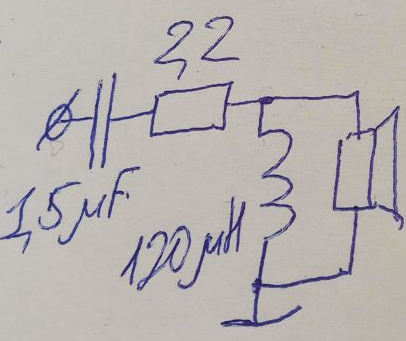 2,2
1,5µF
120µH